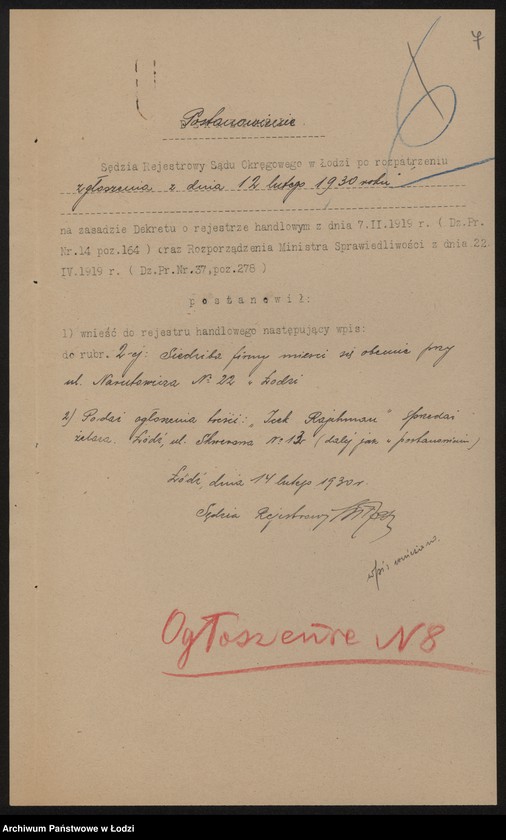 7
Postanowienie
Sędzia Rejestrowy Sądu Okręgowego w Łodzi po rozpatrzeniu
zgłoszenia z dnia 12 lutego 1930 roku
na zasadzie Dekretu o rejestrze handlowym z dnia 7.II.1919 r. ( Dz.Pr.
Nr.14 poz.164 ) oraz Rozporządzenia Ministra Sprawiedliwości z dnia 22
IV.1919 r. ( Dz.Pr.Nr.37,poz.276 )
postanowił:
1) wnieść do rejestru handlowego następujący wpis:
do rubr. 2-ej: Siedziba firmy mieści się obecnie przy
ul. Narutowicza № 22 w Łodzi
2) Podać ogłoszenia treści: "Icek Rajchman" sprzedaż
żelaza. Łódź, ul. № 13. (dalej jak w postanowieniu)
Łódź, dnia 14 lutego 1930 r.
Sędzia Rejestrowy
wpis
Ogłoszenie N8
Archiwum Państwowe w Łodzi